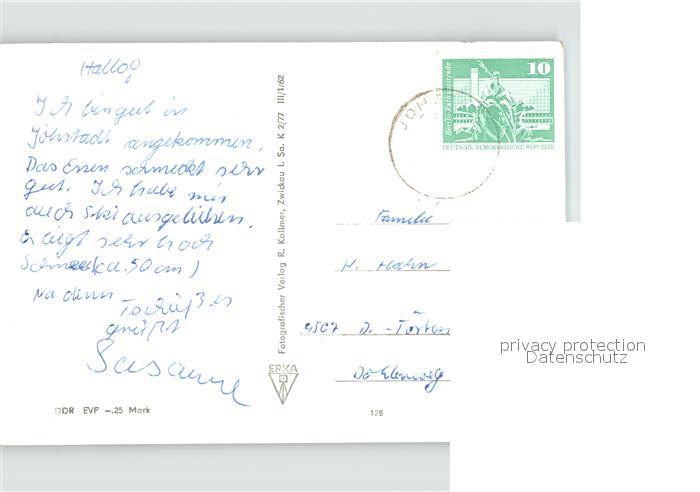 Hallo!
Ich bin gut in
Jöhstadt angekommen.
Das Essen schmeckt sehr
gut. Ich habe mir
auch Ski ausgeliehen.
Es liegt sehr hoch
Schnee (ca. 50 cm)
Na dann
Tschüß es
grüßt
Susanne
DDR EVP -.25 Mark
Fotografischer Verlag R. Kallmer, Zwickau i. Sa. K 2/77 III/1/62
ERKA
10
Berlin-Rathausstraße
DEUTSCHE DEMOKRATISCHE REPUBLIK
JÖH
Familie
H. Hahn
4507 D.-Törten
128
privacy protection
Datenschutz